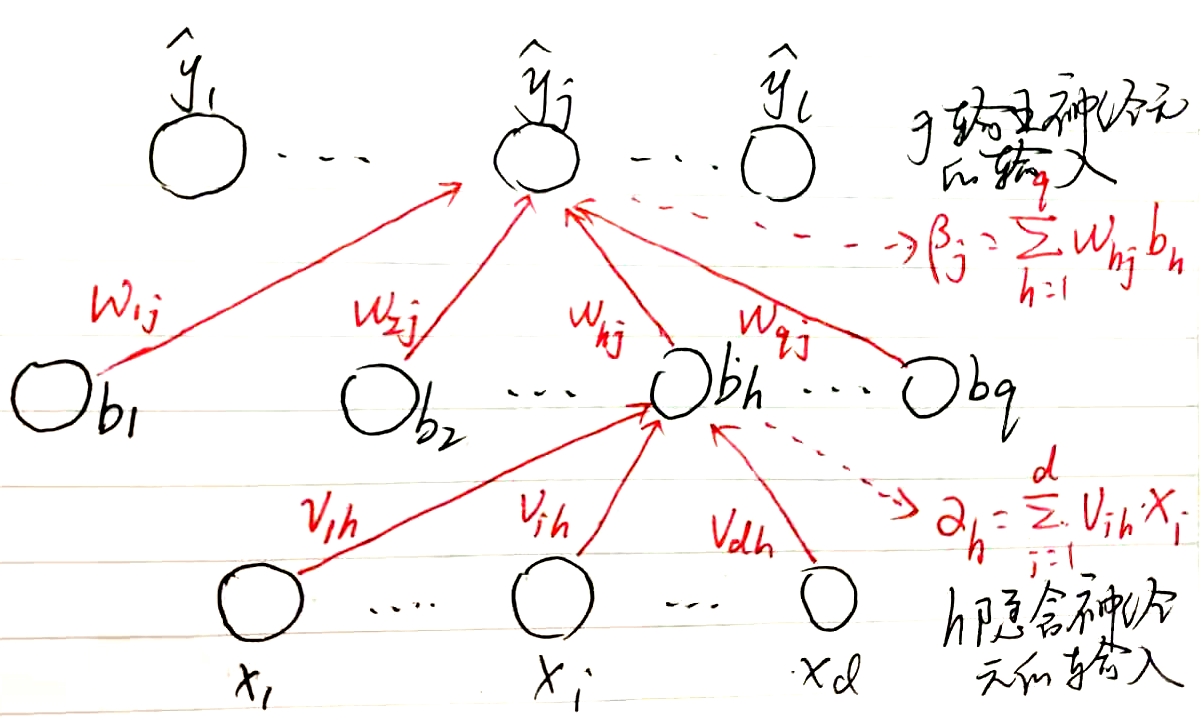 ŷ₁ ŷⱼ ŷₗ
j输出神经元
的输入
βⱼ = Σ_{h=1}^{q} w_{hj} b_h
w_{1j} w_{2j} w_{hj} w_{qj}
b₁ b₂ ···· b_h ···· b_q
v_{1h} v_{ih} v_{dh}
α_h = Σ_{i=1}^{d} v_{ih} · x_i
h隐含神经
元的输入
x₁ x_i x_d